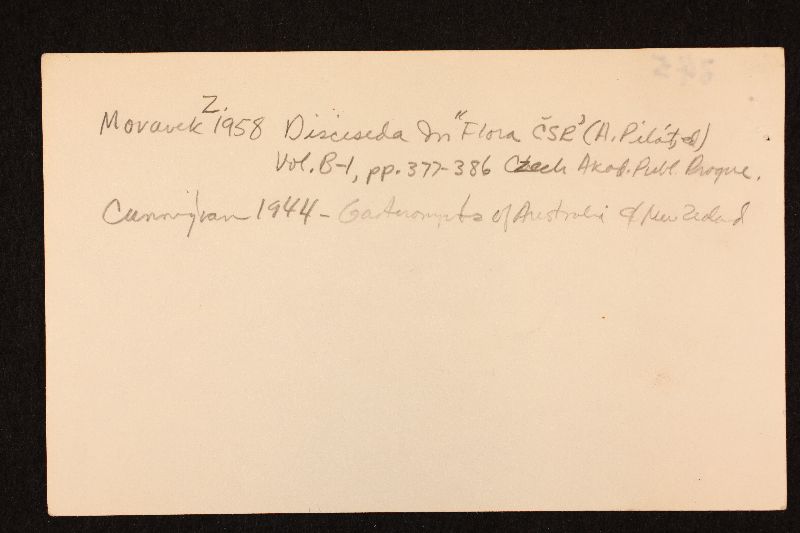 Moravek Z. 1958 Disciseda In "Flora ČSR" (A. Pilát, ed)
Vol. B-1, pp. 377-386 Czech Akad. Publ. Prague.
Cunningham 1944 - Gasteromycetes of Australia & New Zealand